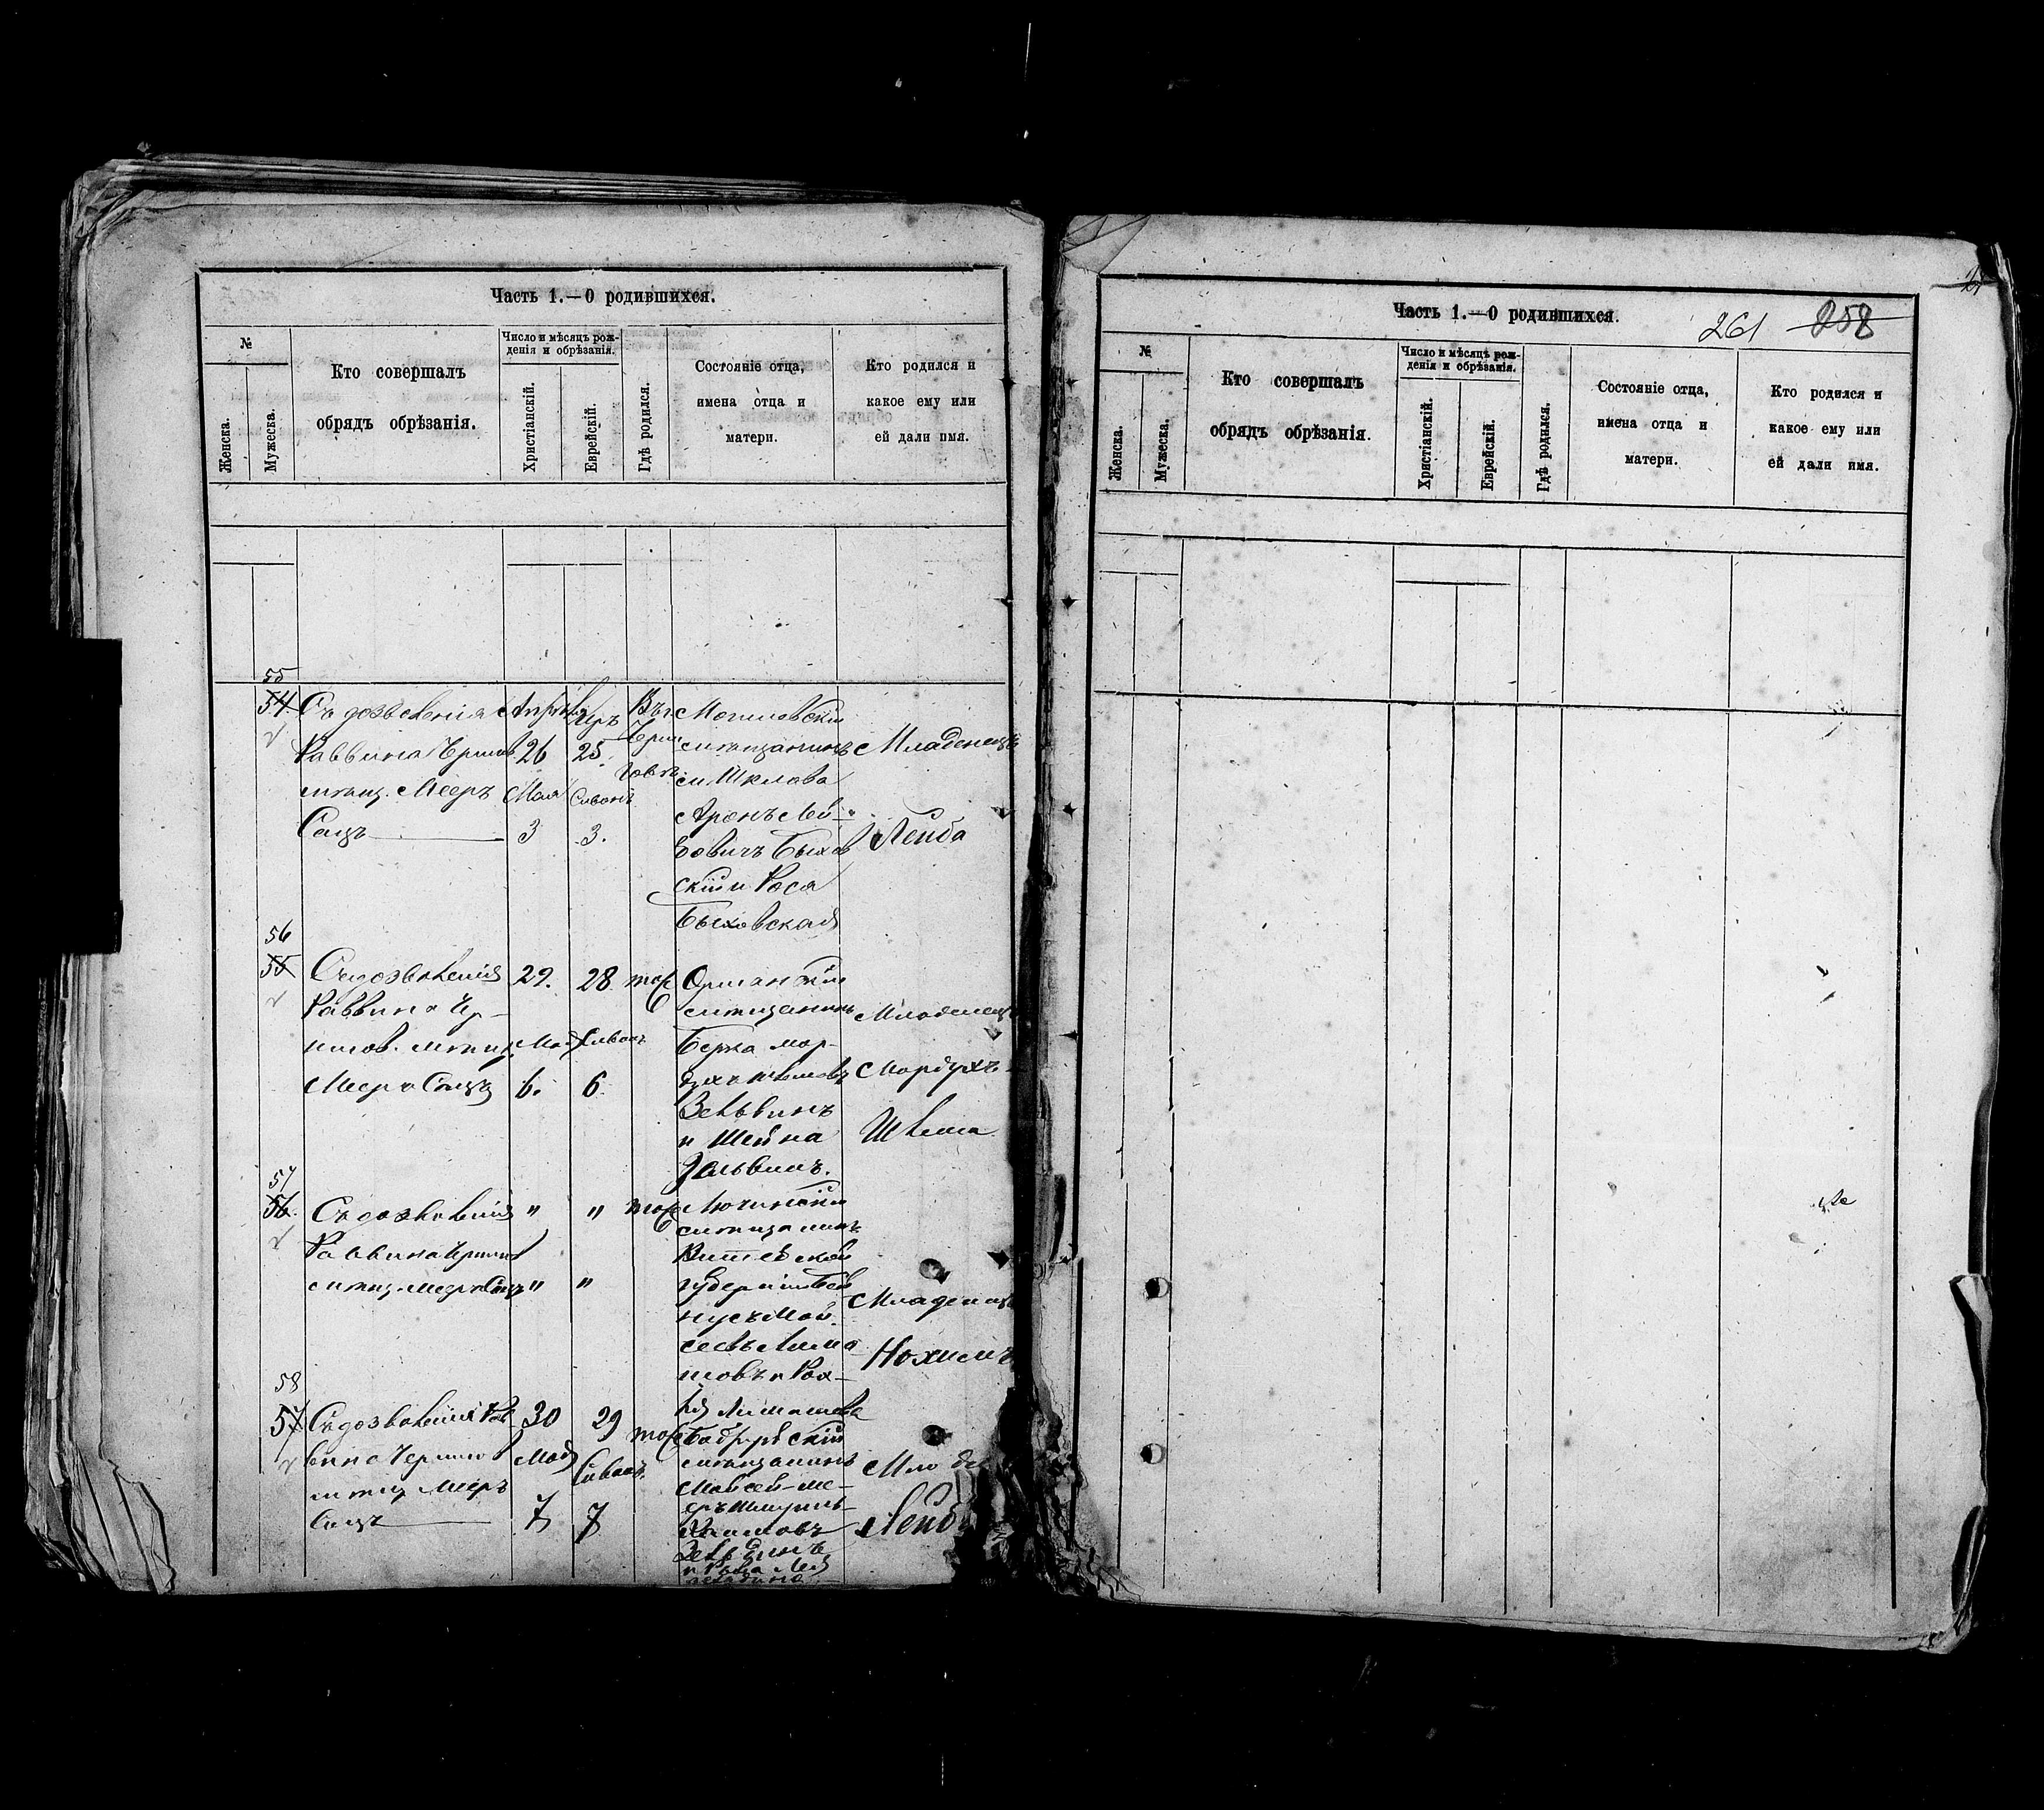 Часть 1.—О родившихся.
№
Женска.
Мужеска.
Кто совершалъ
обрядъ обрѣзанія.
Число и мѣсяцъ рож-
денія и обрѣзанія.
Христіанскій.
Еврейскій.
Гдѣ родился.
Состояніе отца,
имена отца и
матери.
Кто родился и
какое ему или
ей дали имя.
55
54
Съ дозволенія
Раввина Черниг
мѣщ. Мееръ
Сацъ
26
Мая
3
25
Сивонъ
3.
Въ г
Черни
говѣ
Могилевскій
мѣщанинъ
м Шклова
Аронъ Лей
бовичъ Быхов
скій и Рося
Быховская
Младенецъ
Лейба
56
55
Съ дозволенія
Раввина Чер-
нигов. мѣщ.
Меер Сацъ
29.
Мая
6.
28
Сивонъ
6
тоже
Оршанскій
мѣщанинъ
Берка Мор-
Зельвинъ
и Шейна
Зельвинъ.
Младенецъ
Мордухъ
Шлема
57
56.
Съ дозволенія
Раввина Черниг
мѣщ. Меер Сацъ
"
"
"
"
тоже
Лючинскій
мѣщанинъ
Витебской
губерніи
Лима
новъ и Рох-
ля Лиманова
Младенецъ
Нохимъ
58
57
Съ дозволенія Рав
вина Черниго
мѣщ Мееръ
Сацъ
30
Мая
7
29
Сивонъ.
7
тоже
мѣщанинъ
Мовсей-Ме-
еръ
Мла де
Лейб
Часть 1.—О родившихся.
261
258
№
Женска.
Мужеска.
Кто совершалъ
обрядъ обрѣзанія.
Число и мѣсяцъ рож-
денія и обрѣзанія.
Христіанскій.
Еврейскій.
Гдѣ родился.
Состояніе отца,
имена отца и
матери.
Кто родился и
какое ему или
ей дали имя.